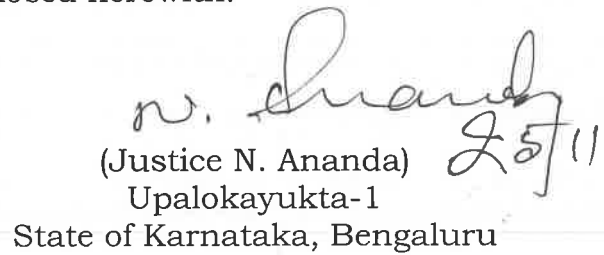 N. Ananda
25/11
(Justice N. Ananda)
Upalokayukta-1
State of Karnataka, Bengaluru